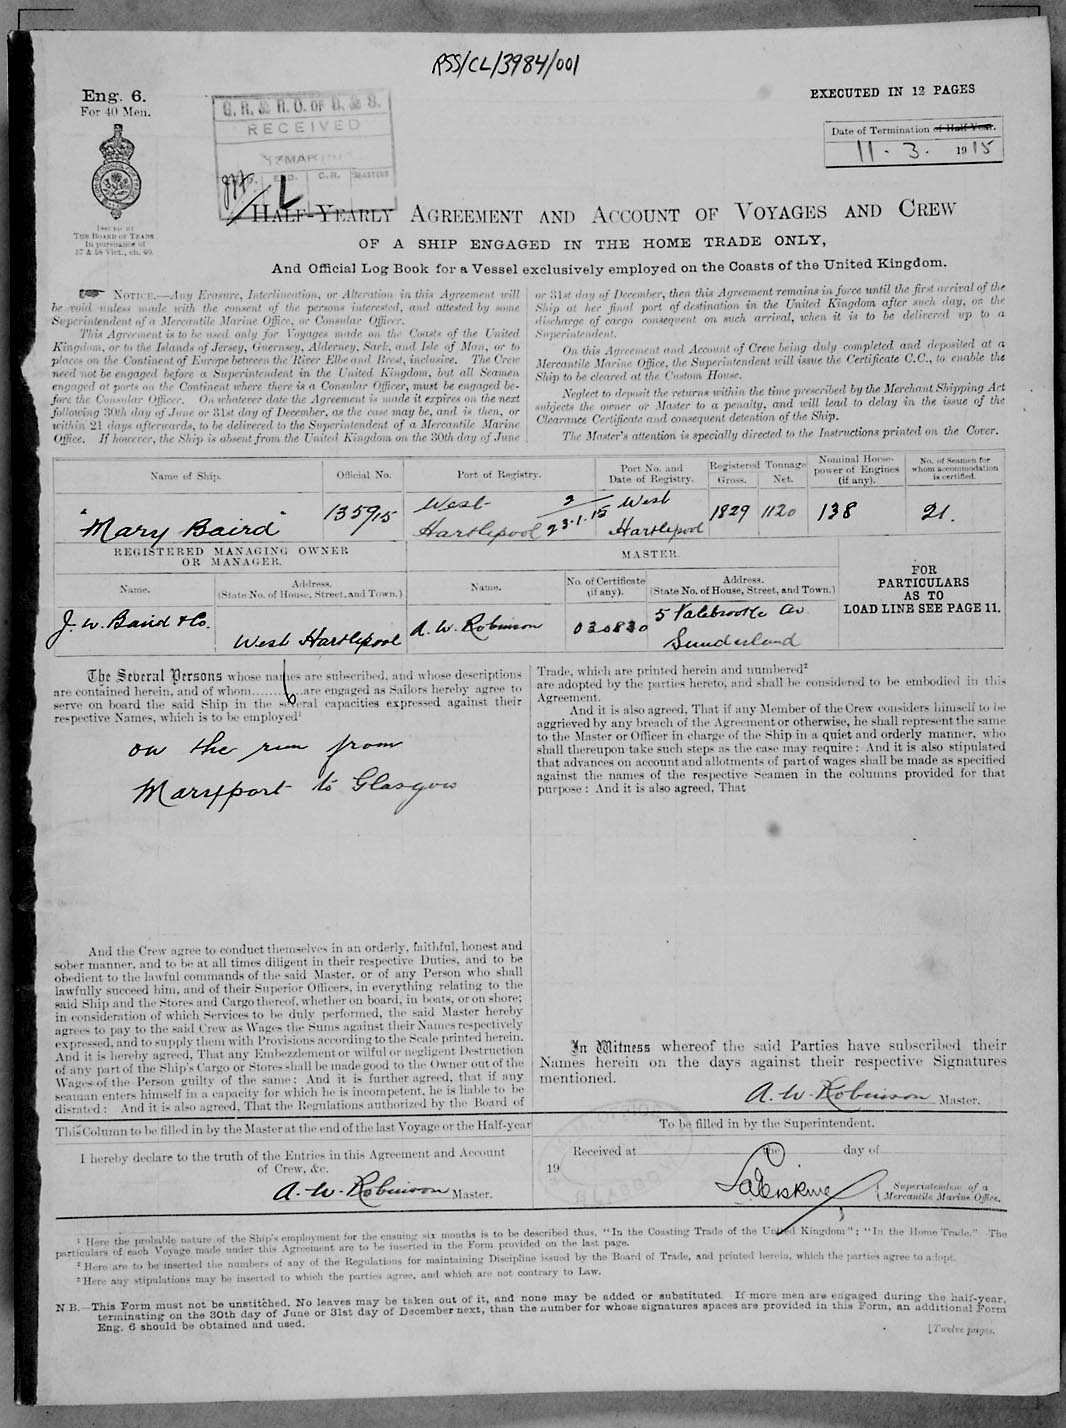 RSS/CL/3984/001
Eng. 6.
For 40 Men.
EXECUTED IN 12 PAGES
Date of Termination of Half Year.
11 - 3. 1915
G. R. & R. O. OF D. & S.
RECEIVED
17 MAR
C.R. MASTERS
L
ISSUED BY
THE BOARD OF TRADE
In pursuance of
57 & 58 Vict., ch. 60.
HALF-YEARLY AGREEMENT AND ACCOUNT OF VOYAGES AND CREW
OF A SHIP ENGAGED IN THE HOME TRADE ONLY,
And Official Log Book for a Vessel exclusively employed on the Coasts of the United Kingdom.
NOTICE.—Any Erasure, Interlineation, or Alteration in this Agreement will
be void unless made with the consent of the persons interested, and attested by some
Superintendent of a Mercantile Marine Office, or Consular Officer.
This Agreement is to be used only for Voyages made on the Coasts of the United
Kingdom, or to the Islands of Jersey, Guernsey, Alderney, Sark, and Isle of Man, or to
places on the Continent of Europe between the River Elbe and Brest, inclusive. The Crew
need not be engaged before a Superintendent in the United Kingdom, but all Seamen
engaged at ports on the Continent where there is a Consular Officer, must be engaged be-
fore the Consular Officer. On whatever date the Agreement is made it expires on the next
following 30th day of June or 31st day of December, as the case may be, and is then, or
within 21 days afterwards, to be delivered to the Superintendent of a Mercantile Marine
Office. If however, the Ship is absent from the United Kingdom on the 30th day of June
or 31st day of December, then this Agreement remains in force until the first arrival of the
Ship at her final port of destination in the United Kingdom after such day, or the
discharge of cargo consequent on such arrival, when it is to be delivered up to a
Superintendent.
On this Agreement and Account of Crew being duly completed and deposited at a
Mercantile Marine Office, the Superintendent will issue the Certificate C.C., to enable the
Ship to be cleared at the Custom House.
Neglect to deposit the returns within the time prescribed by the Merchant Shipping Act
subjects the owner or Master to a penalty, and will lead to delay in the issue of the
Clearance Certificate and consequent detention of the Ship.
The Master's attention is specially directed to the Instructions printed on the Cover.
Name of Ship. Official No. Port of Registry. Port No. and Date of Registry. Registered Tonnage Gross. Net. Nominal Horse-power of Engines (if any). No. of Seamen for whom accommodation is certified.
"Mary Baird" 135915 West Hartlepool 2/23.1.15 West Hartlepool 1829 1120 138 21.
REGISTERED MANAGING OWNER
OR MANAGER.
MASTER.
FOR
PARTICULARS
AS TO
LOAD LINE SEE PAGE 11.
Name. Address. (State No. of House, Street, and Town.) Name. No. of Certificate (if any). Address. (State No. of House, Street, and Town.)
J. W. Baird & Co. West Hartlepool A. W. Robinson 030830 5 Valebrooke Av. Sunderland
The Several Persons whose names are subscribed, and whose descriptions
are contained herein, and of whom 6 are engaged as Sailors hereby agree to
serve on board the said Ship in the several capacities expressed against their
respective Names, which is to be employed¹
on the run from
Maryport to Glasgow
And the Crew agree to conduct themselves in an orderly, faithful, honest and
sober manner, and to be at all times diligent in their respective Duties, and to be
obedient to the lawful commands of the said Master, or of any Person who shall
lawfully succeed him, and of their Superior Officers, in everything relating to the
said Ship and the Stores and Cargo thereof, whether on board, in boats, or on shore;
in consideration of which Services to be duly performed, the said Master hereby
agrees to pay to the said Crew as Wages the Sums against their Names respectively
expressed, and to supply them with Provisions according to the Scale printed herein.
And it is hereby agreed, That any Embezzlement or wilful or negligent Destruction
of any part of the Ship's Cargo or Stores shall be made good to the Owner out of the
Wages of the Person guilty of the same: And it is further agreed, that if any
seaman enters himself in a capacity for which he is incompetent, he is liable to be
disrated: And it is also agreed, That the Regulations authorized by the Board of
Trade, which are printed herein and numbered²
are adopted by the parties hereto, and shall be considered to be embodied in this
Agreement.
And it is also agreed, That if any Member of the Crew considers himself to be
aggrieved by any breach of the Agreement or otherwise, he shall represent the same
to the Master or Officer in charge of the Ship in a quiet and orderly manner, who
shall thereupon take such steps as the case may require: And it is also stipulated
that advances on account and allotments of part of wages shall be made as specified
against the names of the respective Seamen in the columns provided for that
purpose: And it is also agreed, That
In Witness whereof the said Parties have subscribed their
Names herein on the days against their respective Signatures
mentioned.
A. W. Robinson Master.
This Column to be filled in by the Master at the end of the last Voyage or the Half-year
I hereby declare to the truth of the Entries in this Agreement and Account
of Crew, &c.
A. W. Robinson Master.
To be filled in by the Superintendent.
Received at the day of
19
Superintendent of a
Mercantile Marine Office.
¹ Here the probable nature of the Ship's employment for the ensuing six months is to be described thus, "In the Coasting Trade of the United Kingdom"; "In the Home Trade." The
particulars of each Voyage made under this Agreement are to be inserted in the Form provided on the last page.
² Here are to be inserted the numbers of any of the Regulations for maintaining Discipline issued by the Board of Trade, and printed herein, which the parties agree to adopt.
³ Here any stipulations may be inserted to which the parties agree, and which are not contrary to Law.
N.B.—This Form must not be unstitched. No leaves may be taken out of it, and none may be added or substituted. If more men are engaged during the half-year,
terminating on the 30th day of June or 31st day of December next, than the number for whose signatures spaces are provided in this Form, an additional Form
Eng. 6 should be obtained and used.
[Twelve pages.